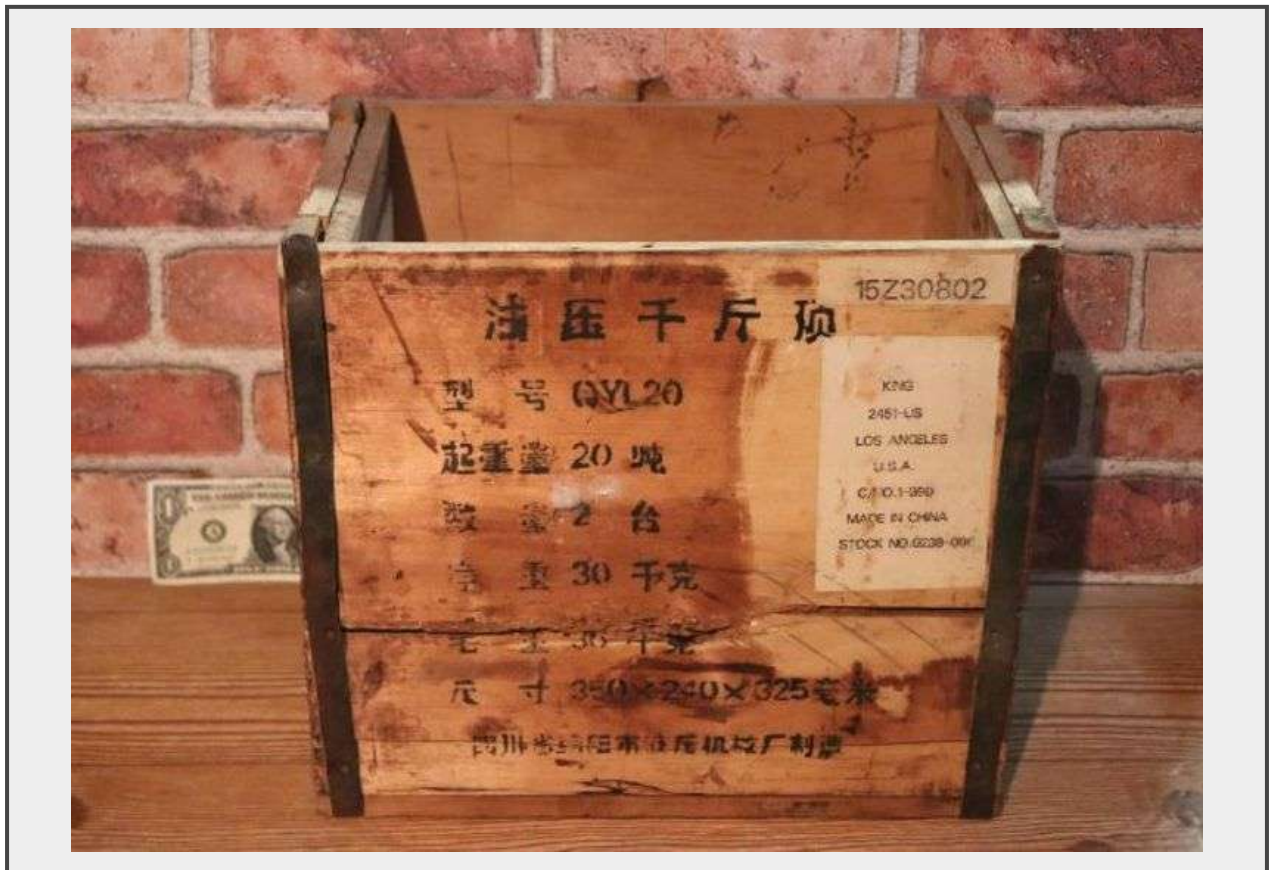 15Z30802
油压千斤顶
型 号 QYL20
起重量 20 吨
数 量 2 台
净 重 30 千克
毛 重 36 千克
尺 寸 350×240×325毫米
四川省绵阳市液压机械厂制造
KING
2451-US
LOS ANGELES
U.S.A.
C/NO.1-999
MADE IN CHINA
STOCK NO.
1